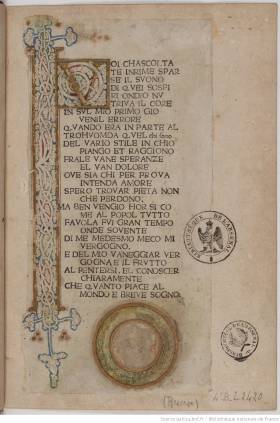 VOI CHASCOLTA
TE INRIME SPAR
SE IL SVONO
DI QVEI SOSPI
RI ONDIO NV
TRIVA IL CORE
IN SVL MIO PRIMO GIO
VENIL ERRORE
QVANDO ERA IN PARTE AL
TROHVOMDA QVEL
DEL VARIO STILE IN CHIO
PIANGO ET RAGGIONO
FRALE VANE SPERANZE
EL VAN DOLORE
OVE SIA CHI PER PROVA
INTENDA AMORE
SPERO TROVAR PIETA NON
CHE PERDONO;
MA BEN VENGIO HOR SI CO
ME AL POPOL TVTTO
FAVOLA FVI GRAN TEMPO
ONDE SOVENTE
DI ME MEDESMO MECO MI
VERGOGNO,
E DEL MIO VANEGGIAR VER
GOGNA E IL FRVTTO
AL PENTERSI, EL CONOSCER
CHIARAMENTE
CHE QVANTO PIACE AL
MONDO E BREVE SOGNO
4° B.L 2480
Source gallica.bnf.fr / Bibliothèque nationale de France